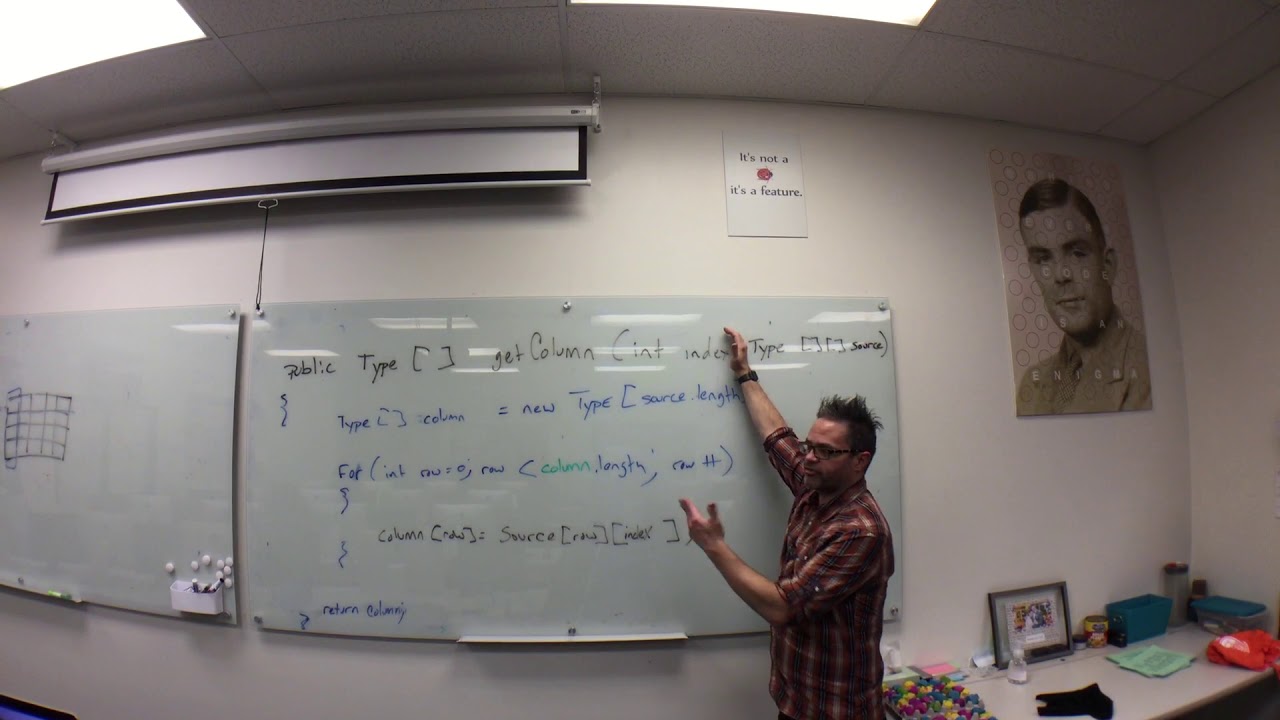 It's not a
it's a feature.
CODE
IS AN
ENIGMA
public Type [ ] getColumn (int index, Type [][] source)
{
Type [ ] column = new Type [source.length
for (int row=0; row < column.length; row ++)
{
column [row] = Source [row][index ];
}
return column;
}